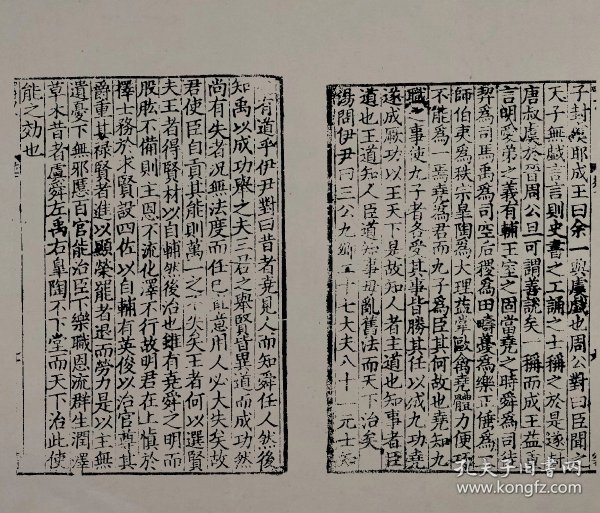 子封矦耶成王曰余一與虞戲也周公對曰臣聞之
天子無戲言言則史書之工誦之士稱之於是遂封
唐叔虞於晉周公旦可謂善說矣一稱而成王益重
言明愛弟之義有輔王室之固當堯之時舜為司徒
契為司馬禹為司空后稷為田疇夔為樂正倕為工
師伯夷為秩宗皐陶為大理益掌敺禽堯體力便巧
不能為一焉堯為君而九子為臣其何故也堯知九
職之事使九子者各受其事皆勝其任以成九功堯
遂成厥功以王天下是故知人者主道也知事者臣
道也王道知人臣道知事毋亂舊法而天下治矣
湯問伊尹曰三公九卿二十七大夫八十一元士知之
有道乎伊尹對曰昔者堯見人而知舜任人然後
知禹以成功舉之夫三君之舉賢皆異道而成功然
尚有失者況無法度而任己直意用人必大失矣故
君使臣自貢其能則萬一之不失矣王者何以選賢
夫王者得賢材以自輔然後治也雖有堯舜之明而
股肱不備則主恩不流化澤不行故明君在上慎於
擇士務於求賢設四佐以自輔有英俊以治官尊其
爵重其祿賢者進以顯榮罷者退而勞力是以主無
遺憂下無邪慝百官能治臣下樂職恩流群生潤澤
草木昔者虞舜左禹右皐陶不下堂而天下治此使
能之効也
孔夫子旧书网
www.kongfz.com